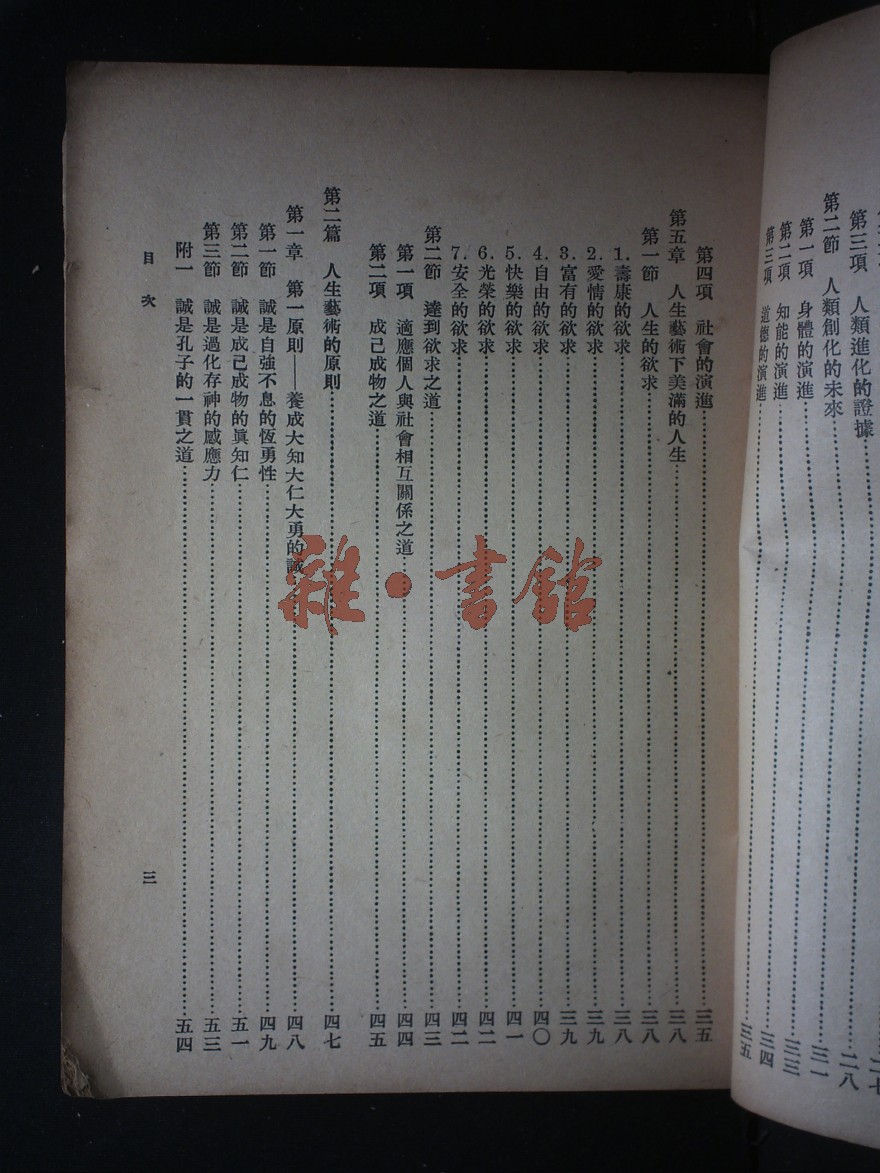 第三項　人類進化的證據
第二節　人類創化的未來……二八
第一項　身體的演進……三一
第二項　知能的演進……三三
第三項　道德的演進……三四
第四項　社會的演進……三五
第五章　人生藝術下美滿的人生……三八
第一節　人生的欲求……三八
1. 壽康的欲求……三八
2. 愛情的欲求……三九
3. 富有的欲求……三九
4. 自由的欲求……四〇
5. 快樂的欲求……四一
6. 光榮的欲求……四二
7. 安全的欲求……四二
第二節　達到欲求之道……四三
第一項　適應個人與社會相互關係之道……四四
第二項　成己成物之道……四五
第二篇　人生藝術的原則……四七
第一章　第一原則——養成大知大仁大勇的誠……四八
第一節　誠是自強不息的恆勇性……四九
第二節　誠是成己成物的眞知仁……五一
第三節　誠是過化存神的感應力……五三
附一　誠是孔子的一貫之道……五四
目次
三
雜·書館